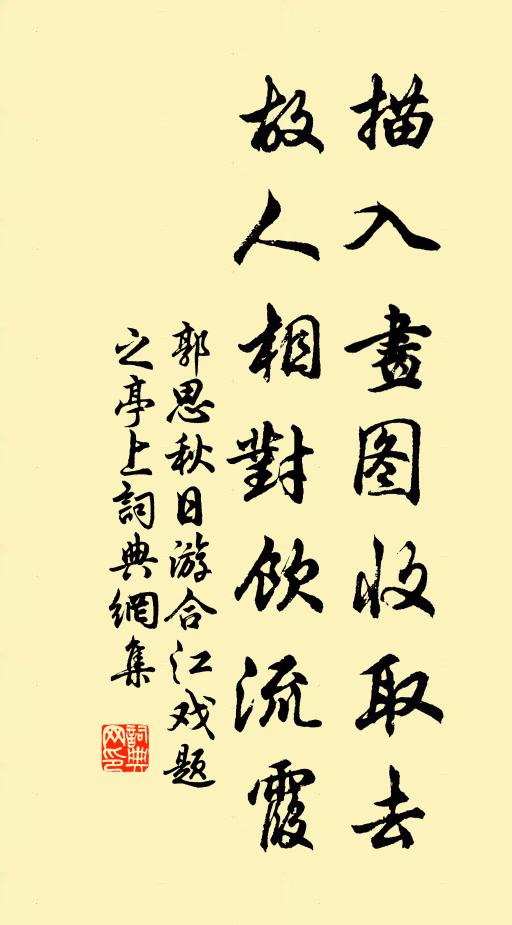 描入畫图收取去
故人相對飲流霞
郭思秋日游合江戏题
之亭上詞典網集
詞典
网印